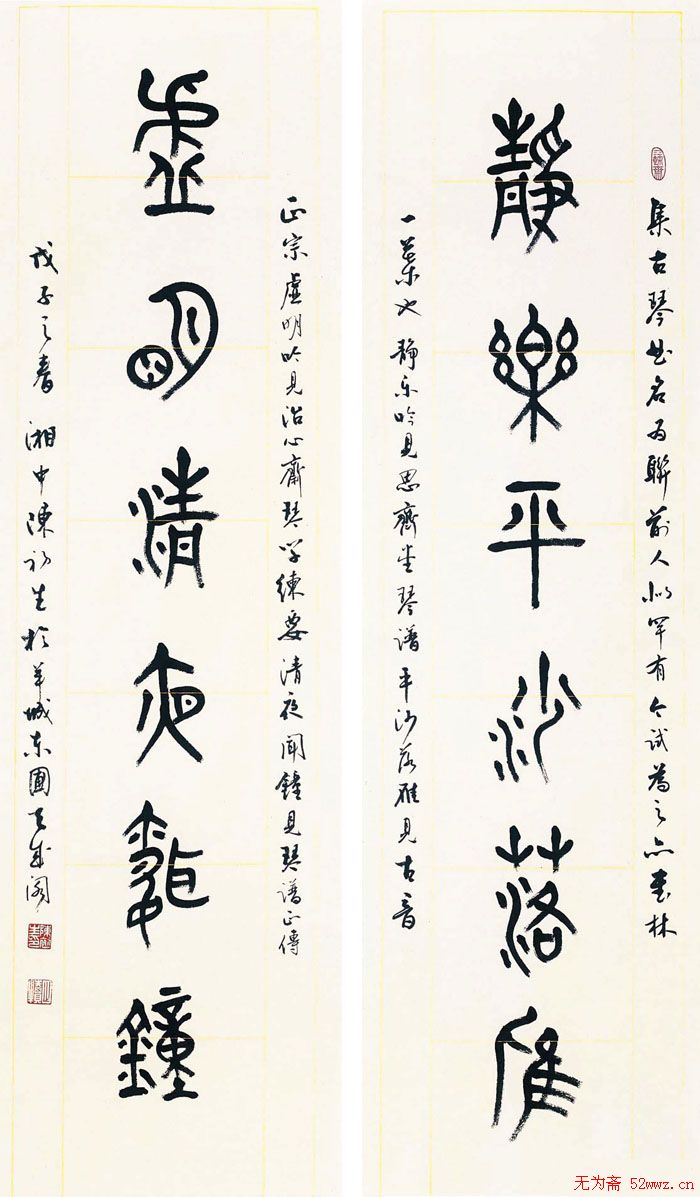 集古琴曲名为聯前人似罕有今试為之亦艺林
靜樂平沙落雁
一也静乐吟見思齊堂琴谱平沙落雁見古音
正宗虚明吟見治心齋琴学练要清夜聞鐘見琴谱正傳
虚明清夜聞鐘
戊子之春 湘中陳初生於羊城东圃天成阁
陳初生印
无为斋 52wwz.cn